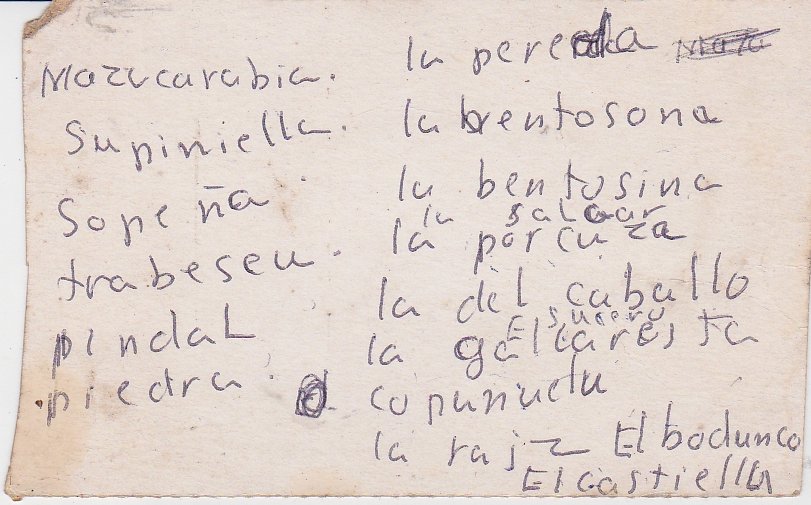 Mazucarabia.
Supiniella.
Sopeña.
trabeseu.
pindaL
piedra.
la pereda
la bentosona
la bentosina
la saLgar
la porcuza
la del caballo
El sucero
la gallaresta
copuñuelu
la raiz El bodunco
El castiella